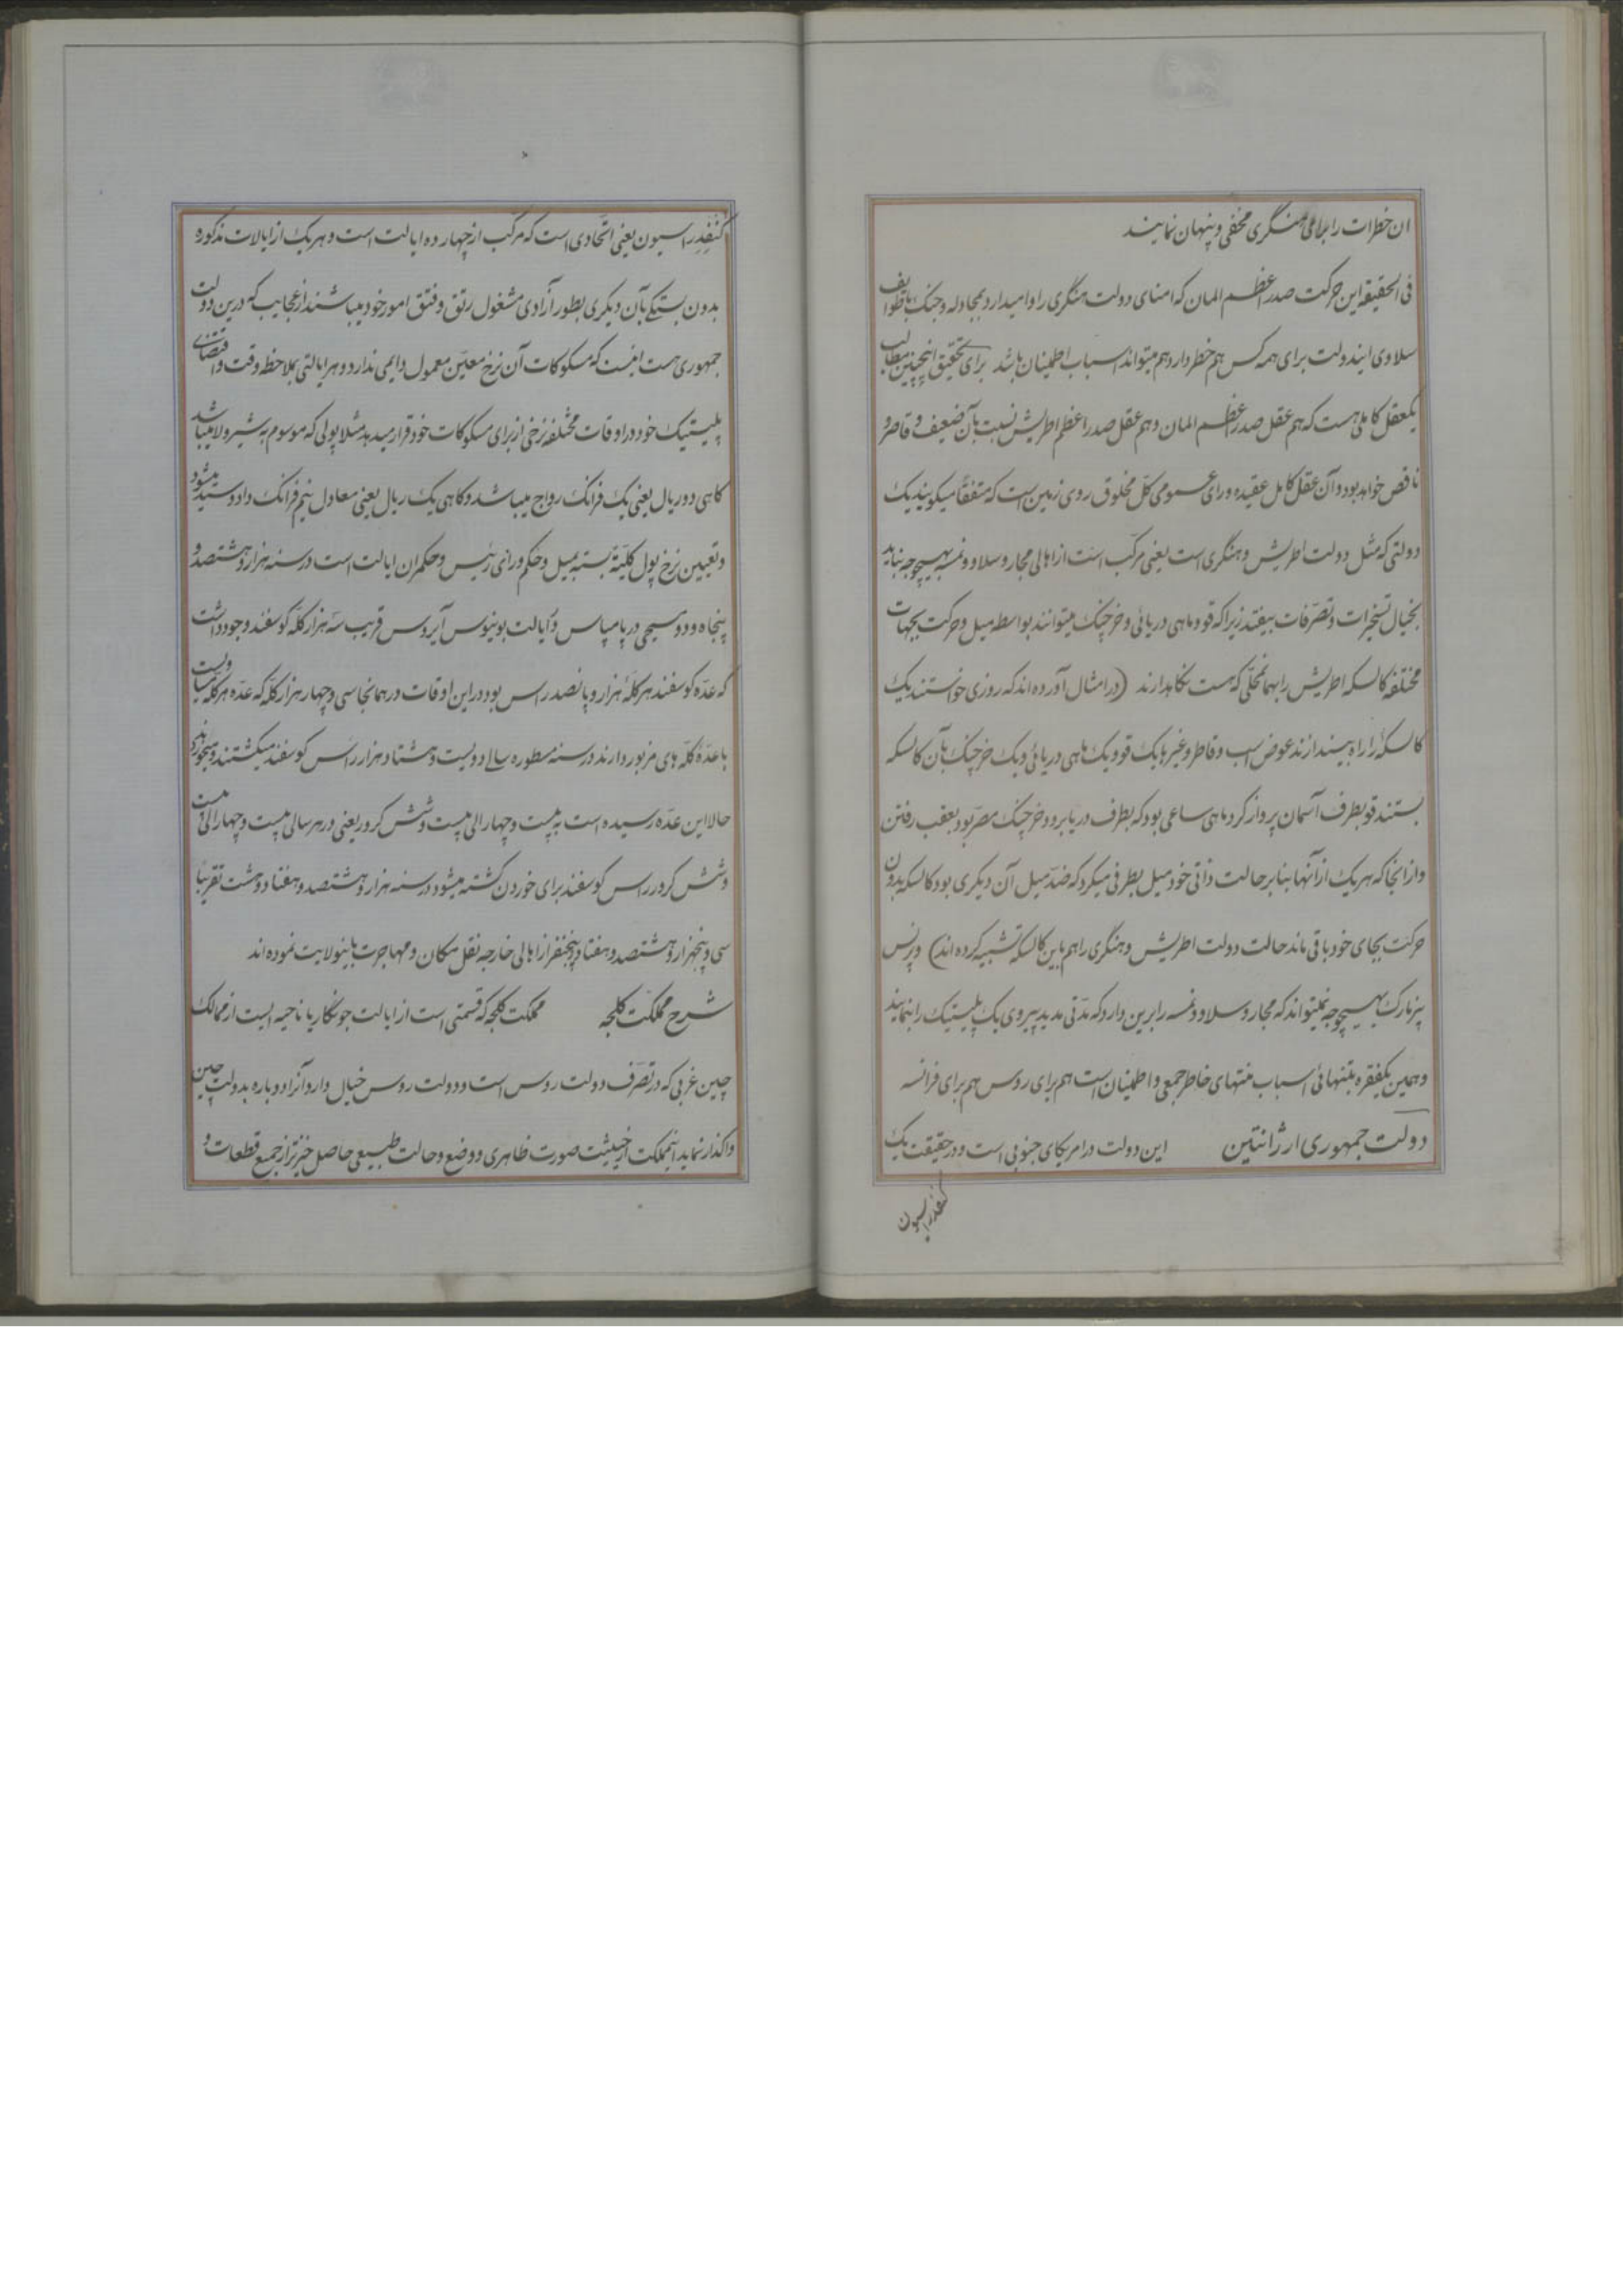 ان خطرات را براهالی هنگری مخفی و پنهان نمایند
فی الحقیقه این حرکت صدر اعظم المان که امنای دولت هنگری را وامیدارد بمجادله و جنک با طوایف
سلاوی ایندولت برای همه کس هم خطر دارد هم میتواند اسباب اطمینان باشد برای تحقیق اینچنین مطالب
یکعقل کاملی هست که هم عقل صدر اعظم المان و هم عقل صدر اعظم اطریش نسبت بآن ضعیف و قاصر و
ناقص خواهد بود و آن عقل کامل عقیده و رای عمومی کل مخلوق روی زمین است که متفقاً میکویند یک
دولتی که مثل دولت اطریش و هنگری است یعنی مرکب است از اهالی مجار و سلاو و نمسه بهیچوجه نباید
بخیال تسخیرات و تصرفات بیفتد زیرا که قو و ماهی دریائی و خرچنک میتوانند بواسطه میل و حرکت بجهات
مختلفه کالسکه اطریش را بهمان محلی که هست نکاهدارند (در امثال آورده اند که روزی خواستند یک
کالسکهٔ را راه بیندازند عوض اسب و قاطر و غیرها یک قو و یک ماهی دریائی و یک خرچنک بآن کالسکه
بستند قو بطرف آسمان پرواز کرد ماهی ساعی بود که بطرف دریا برود خرچنک مصر بود بعقب رفتن
و از انجا که هر یک از آنها بنابر حالت ذاتی خود میل بطرفی میکرد که ضد میل آن دیکری بود کالسکه بدون
حرکت بجای خود باقی ماند حالت دولت اطریش و هنگری را هم باین کالسکه تشبیه کرده اند) و پرنس
بیزمارک بهیچوجه نمیتواند که مجار و سلاو و نمسه را برین دارد که مدتی مدید پیروی یک پلیتیک را بنمایند
و همین یکفقره بتنهائی اسباب منتهای خاطر جمعی و اطمینان است هم برای روس هم برای فرانسه
دولت جمهوری ارژانتین این دولت در امریکای جنوبی است و در حقیقت یک
کنفدراسیون
کنفدراسیون یعنی اتحادی است که مرکب از چهارده ایالت است و هر یک از ایالات مذکوره
بدون بستکی بآن دیکری بطور آزادی مشغول رتق و فتق امور خود میباشند از عجایب که درین دولت
جمهوری هست اینست که مسکوکات آن نرخ معین معمول دایمی ندارد و هر ایالتی بملاحظه وقت و اقتضای
پلیتیک خود در اوقات مختلفه نرخی از برای مسکوکات خود قرار میدهد مثلا پولی که موسوم به میباشد
کاهی دو ریال یعنی یک فرانک رواج میباشد و کاهی یک ریال یعنی معادل نیم فرانک داد و ستد میشود
و تعیین نرخ پول کلیتهً بسته بمیل و حکم و رای رئیس و حکمران ایالت است در سنه هزار و هشتصد و
پنجاه و دو مسیحی در پامپاس و ایالت بوینوس آیروس قریب سه هزار کله کوسفند وجود داشت
که عده کوسفند هر کلهٔ هزار و پانصد راس بود در این اوقات در همانجا سی و چهار هزار کله که عده هر کله مساویست
با عدهٔ کله های مزبور دارند در سنه مسطوره سالی دویست و هشتاد هزار راس کوسفند میکشتند و میخوردند
حالا این عده رسیده است به بیست و چهار الی بیست و شش کرور یعنی در هر سالی بیست و چهار الی بیست
و شش کرور راس کوسفند برای خوردن کشته میشود در سنه هزار و هشتصد و هفتاد و هشت تقریباً
سی و پنجهزار و هشتصد و هفتاد و پنجنفر از اهالی خارجه نقل مکان و مهاجرت باینولایت نموده اند
شرح مملکت کلجه مملکت کلجه که قسمتی است از ایالت جونگاریا ناحیه ایست از ممالک
چین غربی که در تصرف دولت روس است و دولت روس خیال دارد آنرا دوباره بدولت چین
واکذار نماید اینمملکت از حیثیت صورت ظاهری و وضع و حالت طبیعی حاصل خیزتر از جمیع قطعات و